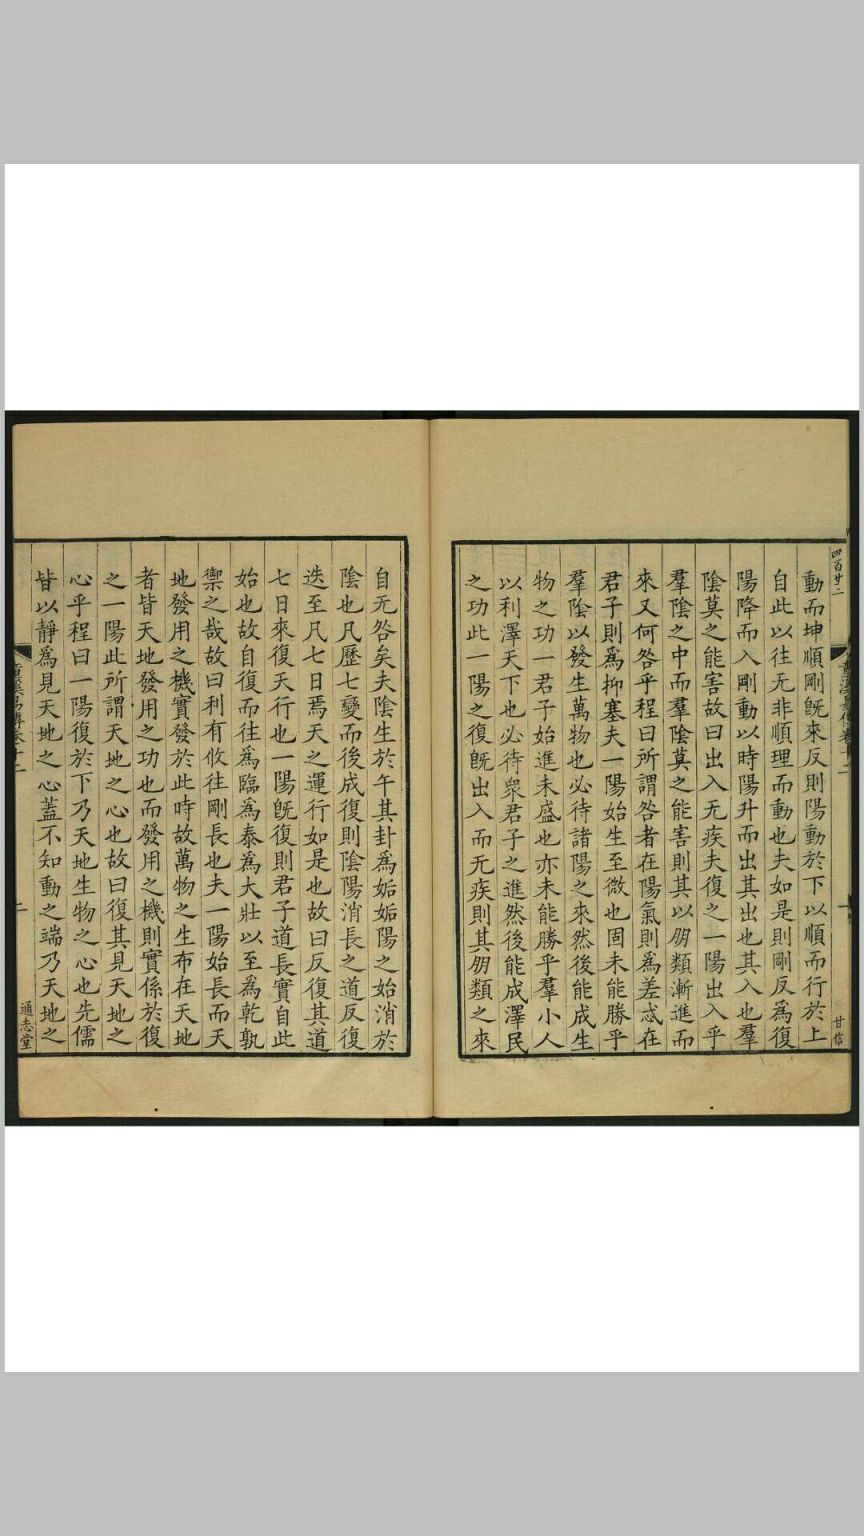 四百廿二
甘信
動而坤順剛旣來反則陽動於下以順而行於上
自此以往无非順理而動也夫如是則剛反爲復
陽降而入剛動以時陽升而出其出也其入也羣
陰莫之能害故曰出入无疾夫復之一陽出入乎
羣陰之中而羣陰莫之能害則其以朋類漸進而
來又何咎乎程曰所謂咎者在陽氣則爲差忒在
君子則爲抑塞夫一陽始生至微也固未能勝乎
羣陰以發生萬物也必待諸陽之來然後能成生
物之功一君子始進未盛也亦未能勝乎羣小人
以利澤天下也必待衆君子之進然後能成澤民
之功此一陽之復旣出入而无疾則其朋類之來
自无咎矣夫陰生於午其卦爲姤姤陽之始消於
陰也凡歷七變而後成復則陰陽消長之道反復
迭至凡七日焉天之運行如是也故曰反復其道
七日來復天行也一陽旣復則君子道長實自此
始也故自復而往爲臨爲泰爲大壯以至爲乾孰
禦之哉故曰利有攸往剛長也夫一陽始長而天
地發用之機實發於此時故萬物之生布在天地
者皆天地發用之功也而發用之機則實係於復
之一陽此所謂天地之心也故曰復其見天地之
心乎程曰一陽復於下乃天地生物之心也先儒
皆以靜爲見天地之心蓋不知動之端乃天地之
通志堂